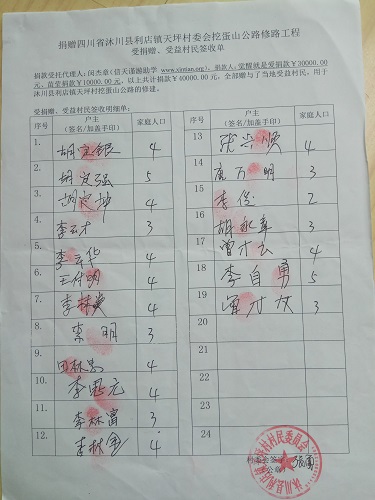 捐赠四川省沐川县利店镇天坪村委会挖蛋山公路修路工程
受捐赠、受益村民签收单
捐款受托代理人：闵杰章（信天谨游助学 www.xintan.org ），捐款人：觉醒就是爱捐款￥30000.00
元，苗堂捐款￥10000.00 元。以上共计捐款￥40000.00 元，全部赠与了当地受益村民，用于
沐川县利店镇天坪村挖蛋山公路的修建。
受捐赠、受益村民签收明细单：
序号 户主 家庭人口
（签名/加盖手印）
1. 胡定银 4
2. 胡定强 5
3. 胡定坤 4
4. 李云才 3
5. 李云华 4
6. 王付明 4
7. 李林 4
8. 李明 3
9. 田林忠 4
10. 李恩元 4
11. 李林富 3
12. 李林金 4
序号 户主 家庭人口
（签名/加盖手印）
13 张兴顺 4
14 万明 3
15 李俊 2
16 胡永章 3
17 曾才云 4
18 李自勇 5
19 才女 3
20
21
22
23
24
村委会签
公章